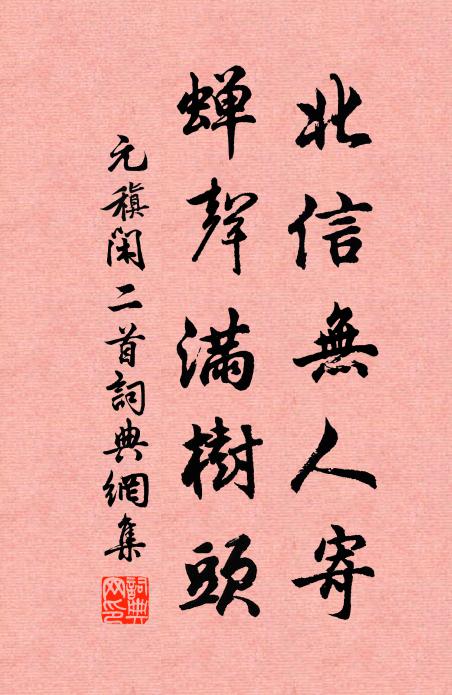 北信無人寄
蟬聲滿樹頭
元稹閑二首詞典網集
詞典网印